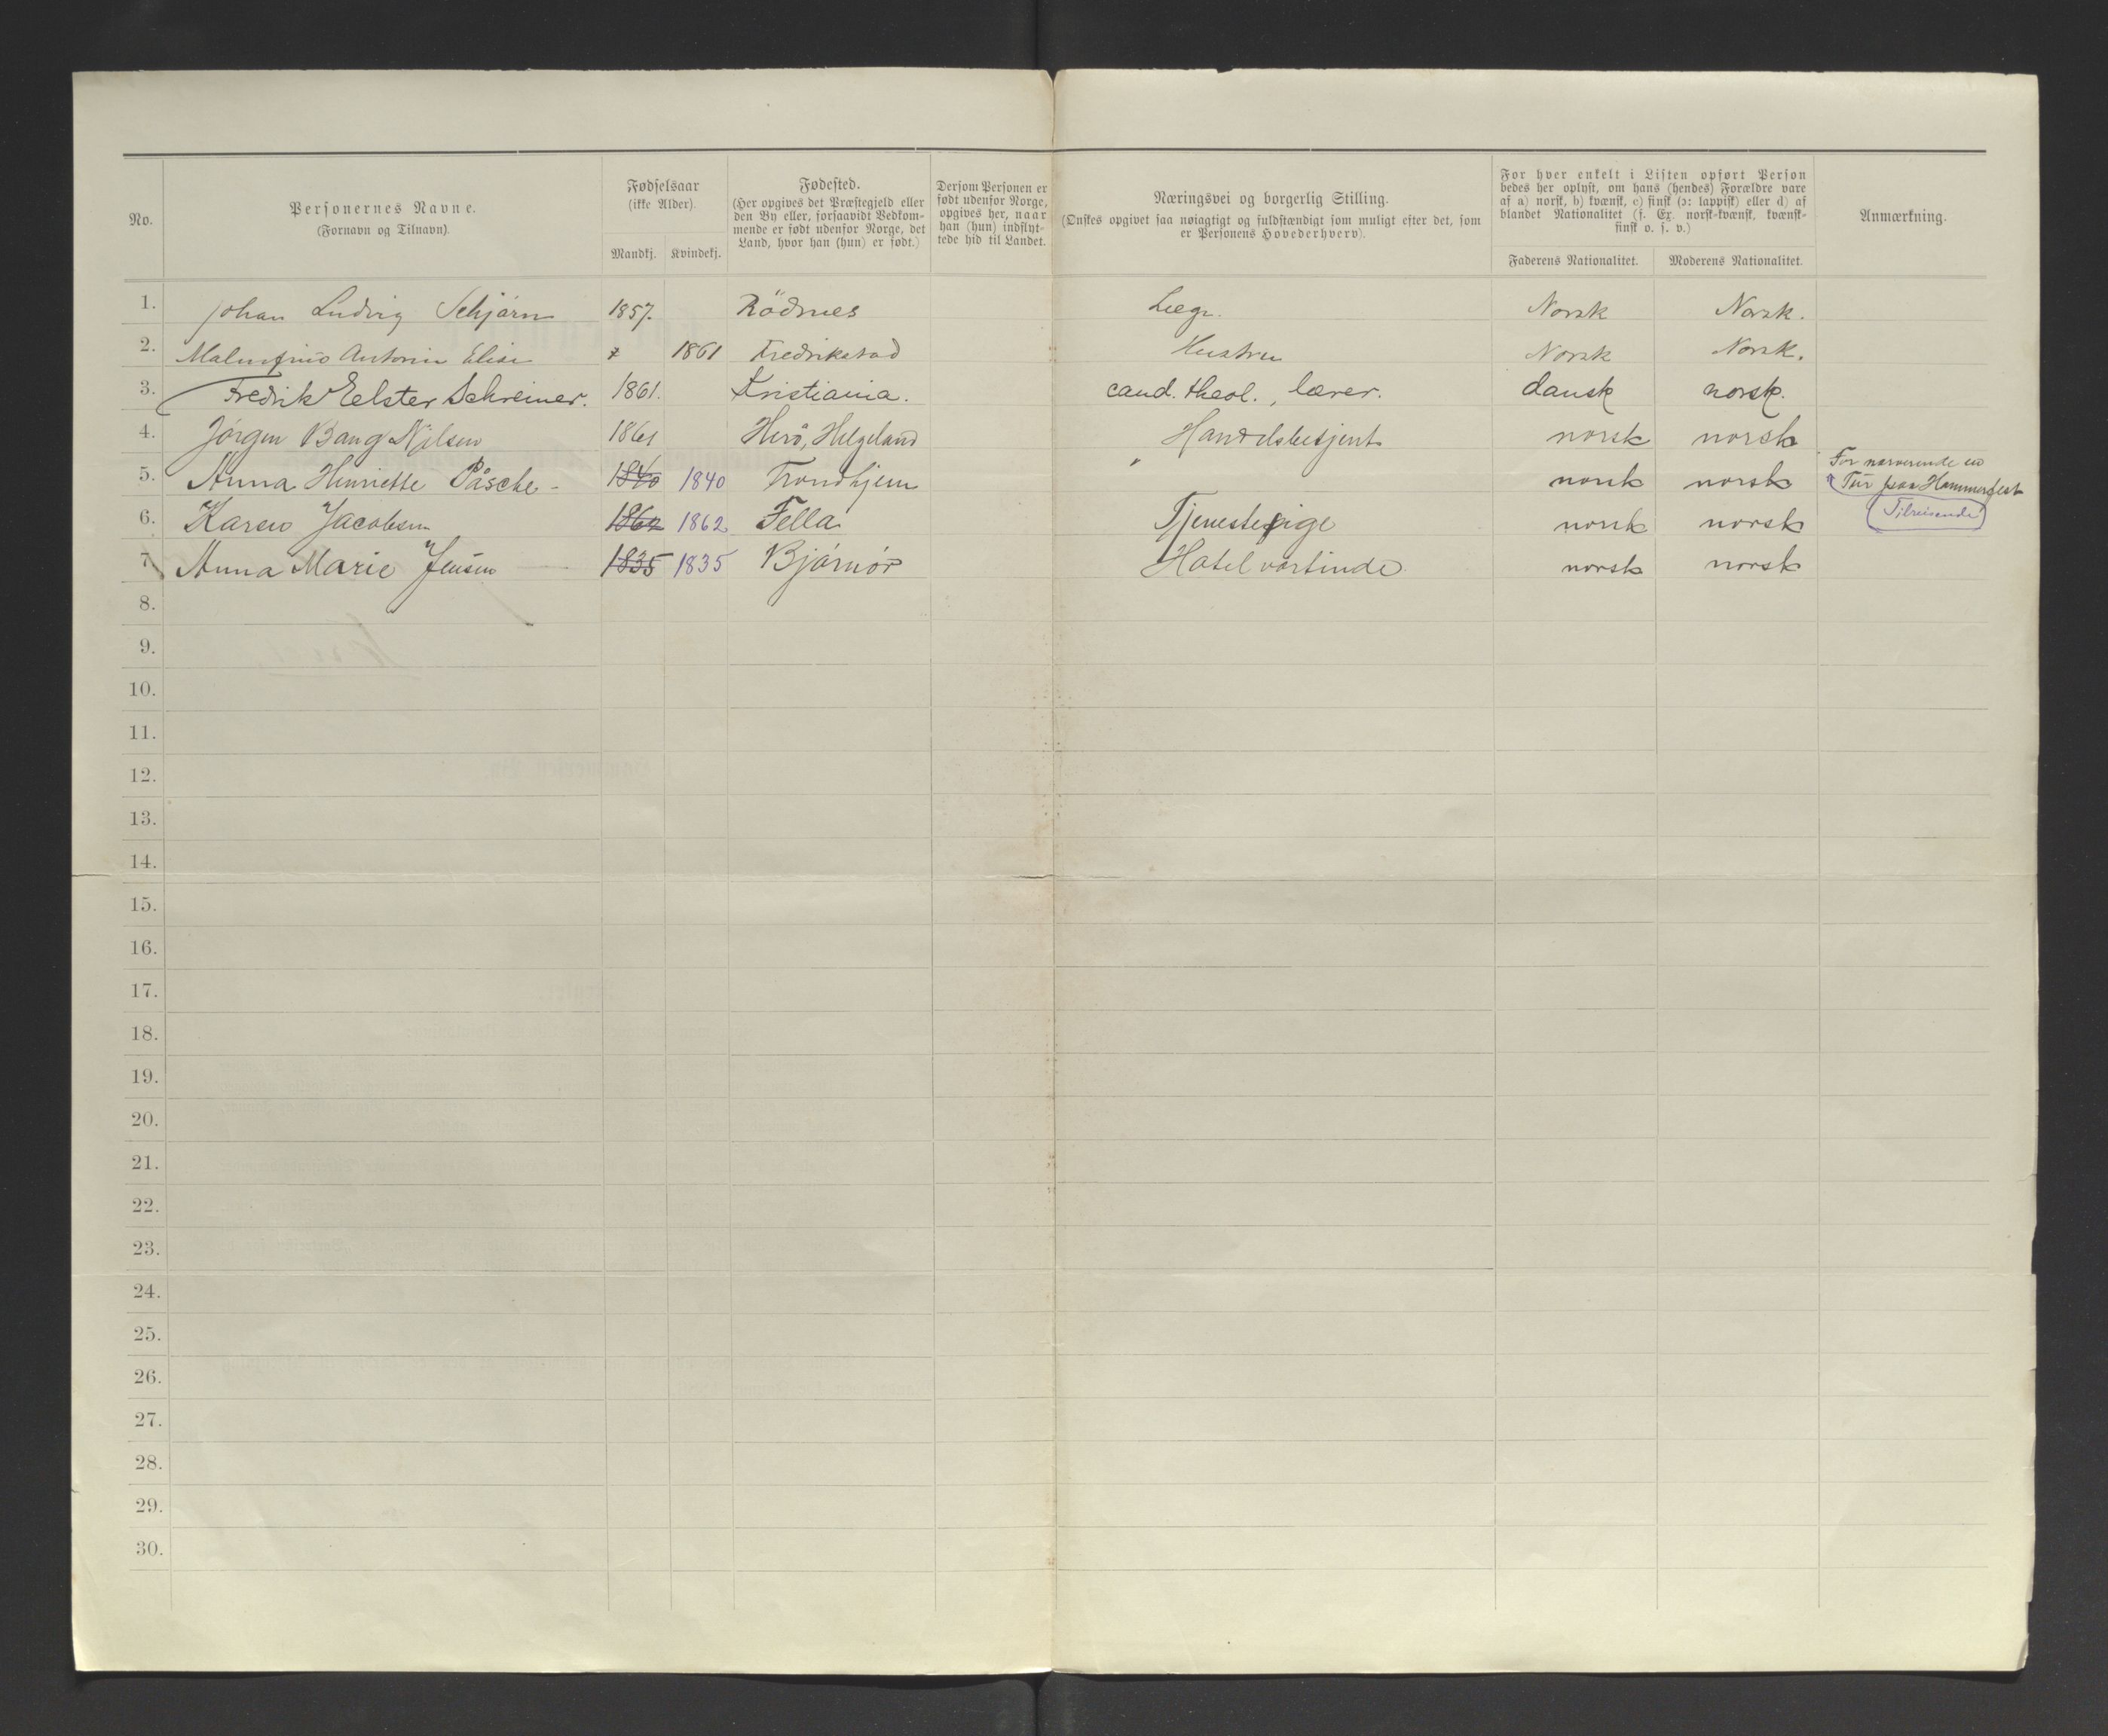 No.
Personernes Navne.
(Fornavn og Tilnavn).
Fødselsaar
(ikke Alder).
Mandkj. Kvindekj.
Fødested.
(Her opgives det Præstegjeld eller
den By eller, forsaavidt Vedkom-
mende er født udenfor Norge, det
Land, hvor han (hun) er født.)
Dersom Personen er
født udenfor Norge,
opgives her, naar
han (hun) indflyt-
tede hid til Landet.
Næringsvei og borgerlig Stilling.
(Ønskes opgivet saa nøiagtigt og fuldstændigt som muligt efter det, som
er Personens Hovederhverv).
For hver enkelt i Listen opført Person
bedes her oplyst, om hans (hendes) Forældre vare
af a) norsk, b) kvænsk, c) finsk (ɔ: lappisk) eller d) af
blandet Nationalitet (f. Ex. norsk-kvænsk, kvænsk-
finsk o. s. v.)
Faderens Nationalitet. Moderens Nationalitet.
Anmærkning.
1. Johan Ludvig Schjørn 1857. Rödnes Læge. Norsk Norsk.
2. Antonie Elise 1861 Fredrikstad Hustru Norsk Norsk.
3. Fredrik Eelster Schreiner. 1861. Kristiania. cand. theol., lærer. dansk norsk.
4. Jörgen Bang Nilsen 1861 Herö, Helgeland Handelsbetjent norsk norsk
5. Anna Henriette Påsche - 1840 1840 Trondhjem " norsk norsk For nærværende en
Tur paa Hammerfest
(Tilreisende)
6. Karen Jacobsen 1862 1862 Fella Tjenestepige norsk norsk
7. Anna Marie Jensen 1835 1835 Bjørnør Hotelvartinde norsk norsk
8.
9.
10.
11.
12.
13.
14.
15.
16.
17.
18.
19.
20.
21.
22.
23.
24.
25.
26.
27.
28.
29.
30.